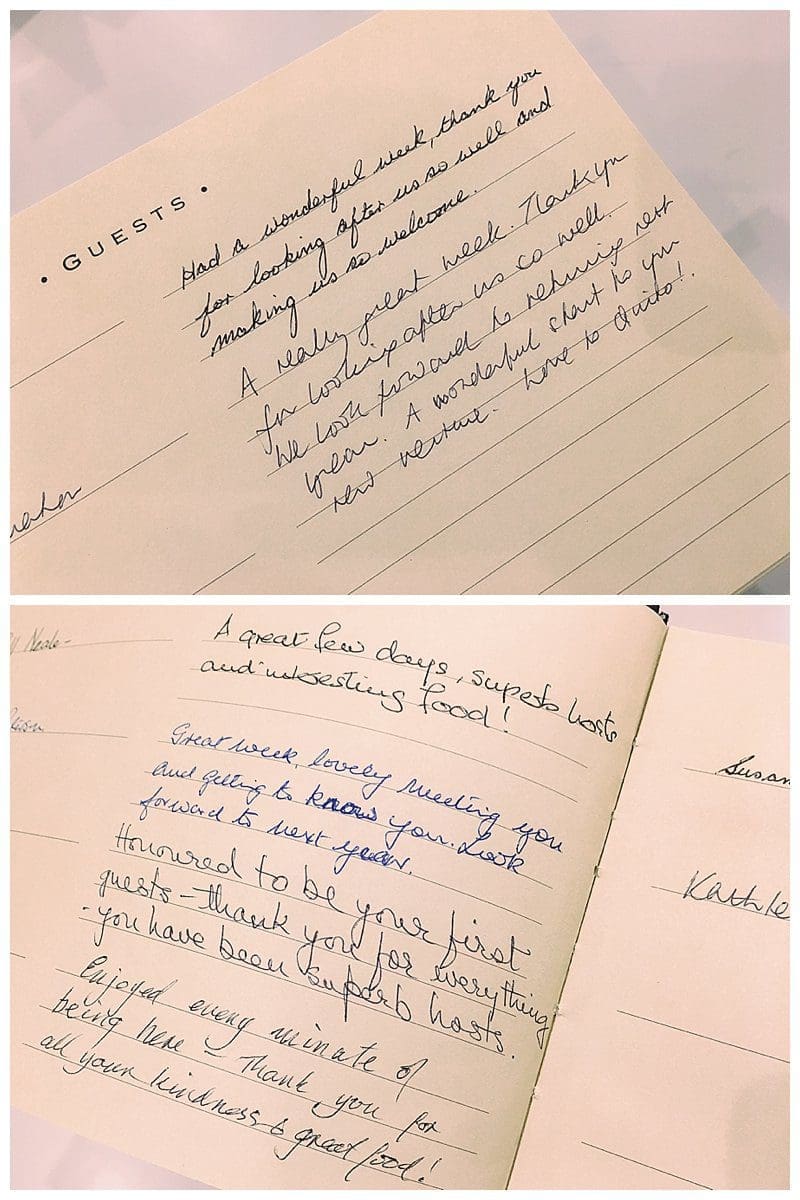 • GUESTS •
Had a wonderful week, thank you
for looking after us so well and
making us so welcome.
A really great week. Thank you
for looking after us so well.
We look forward to returning next
year. A wonderful start to your
new venture. Love to Quito!.
A great few days, superb hosts
and interesting food!
Great week, lovely meeting you
and getting to know you. Look
forward to next year.
Honoured to be your first
guests – thank you for everything
- you have been superb hosts.
Enjoyed every minute of
being here – Thank you for
all your kindness & great food!
Neale-
Susan
Kathle